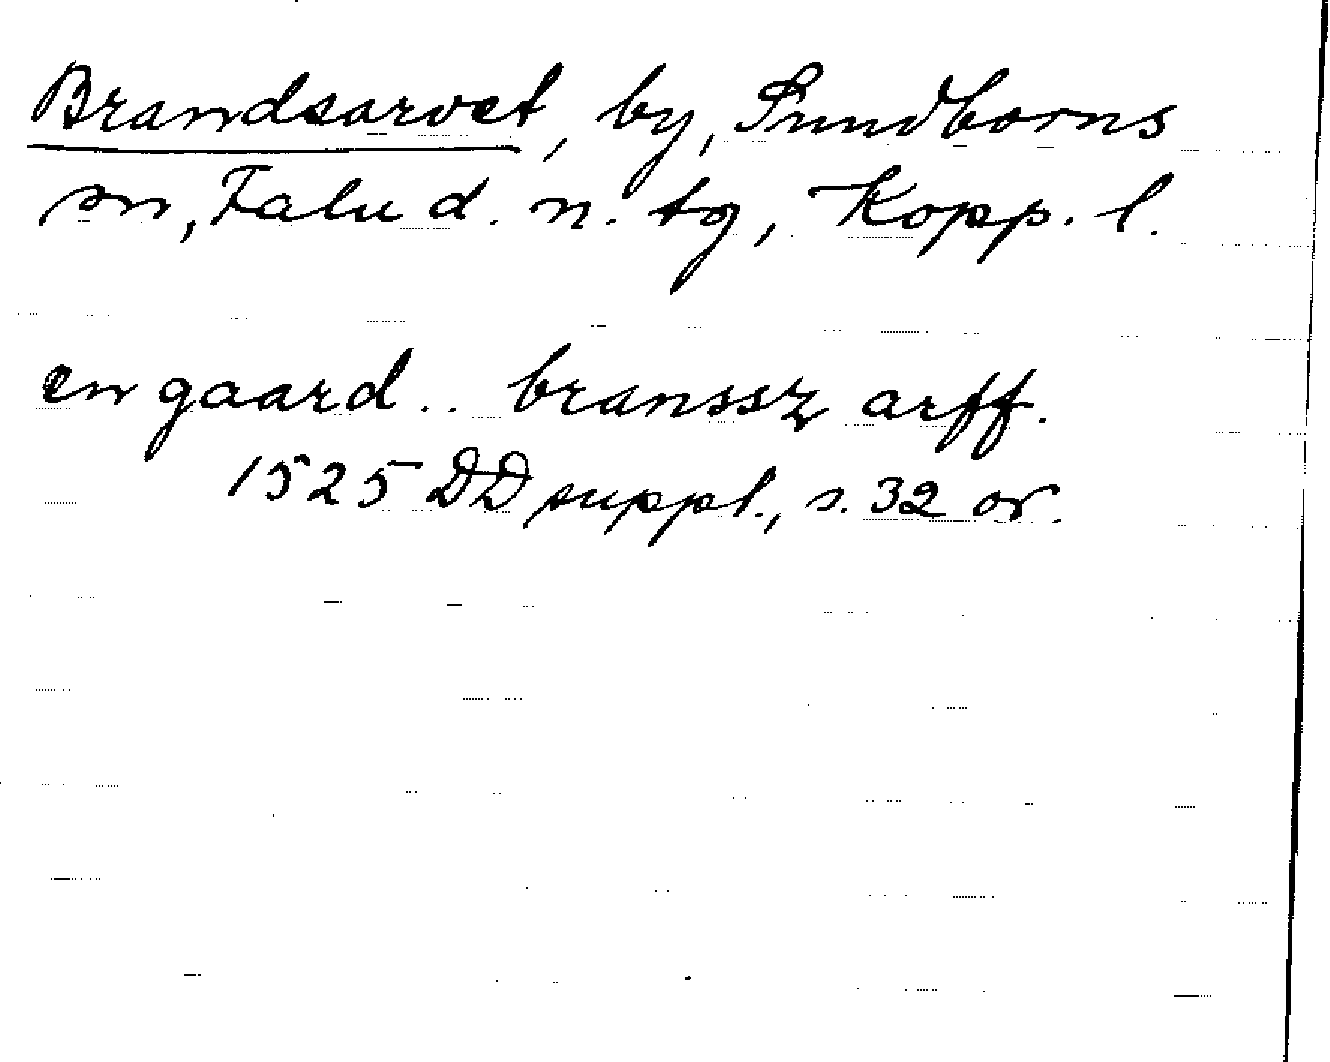 Brandsarvet, by, Sundborns
sn, Falu d. n. tg, Kopp. l.
en gaard .. branssz arff.
1525 DD suppl., s. 32 or.